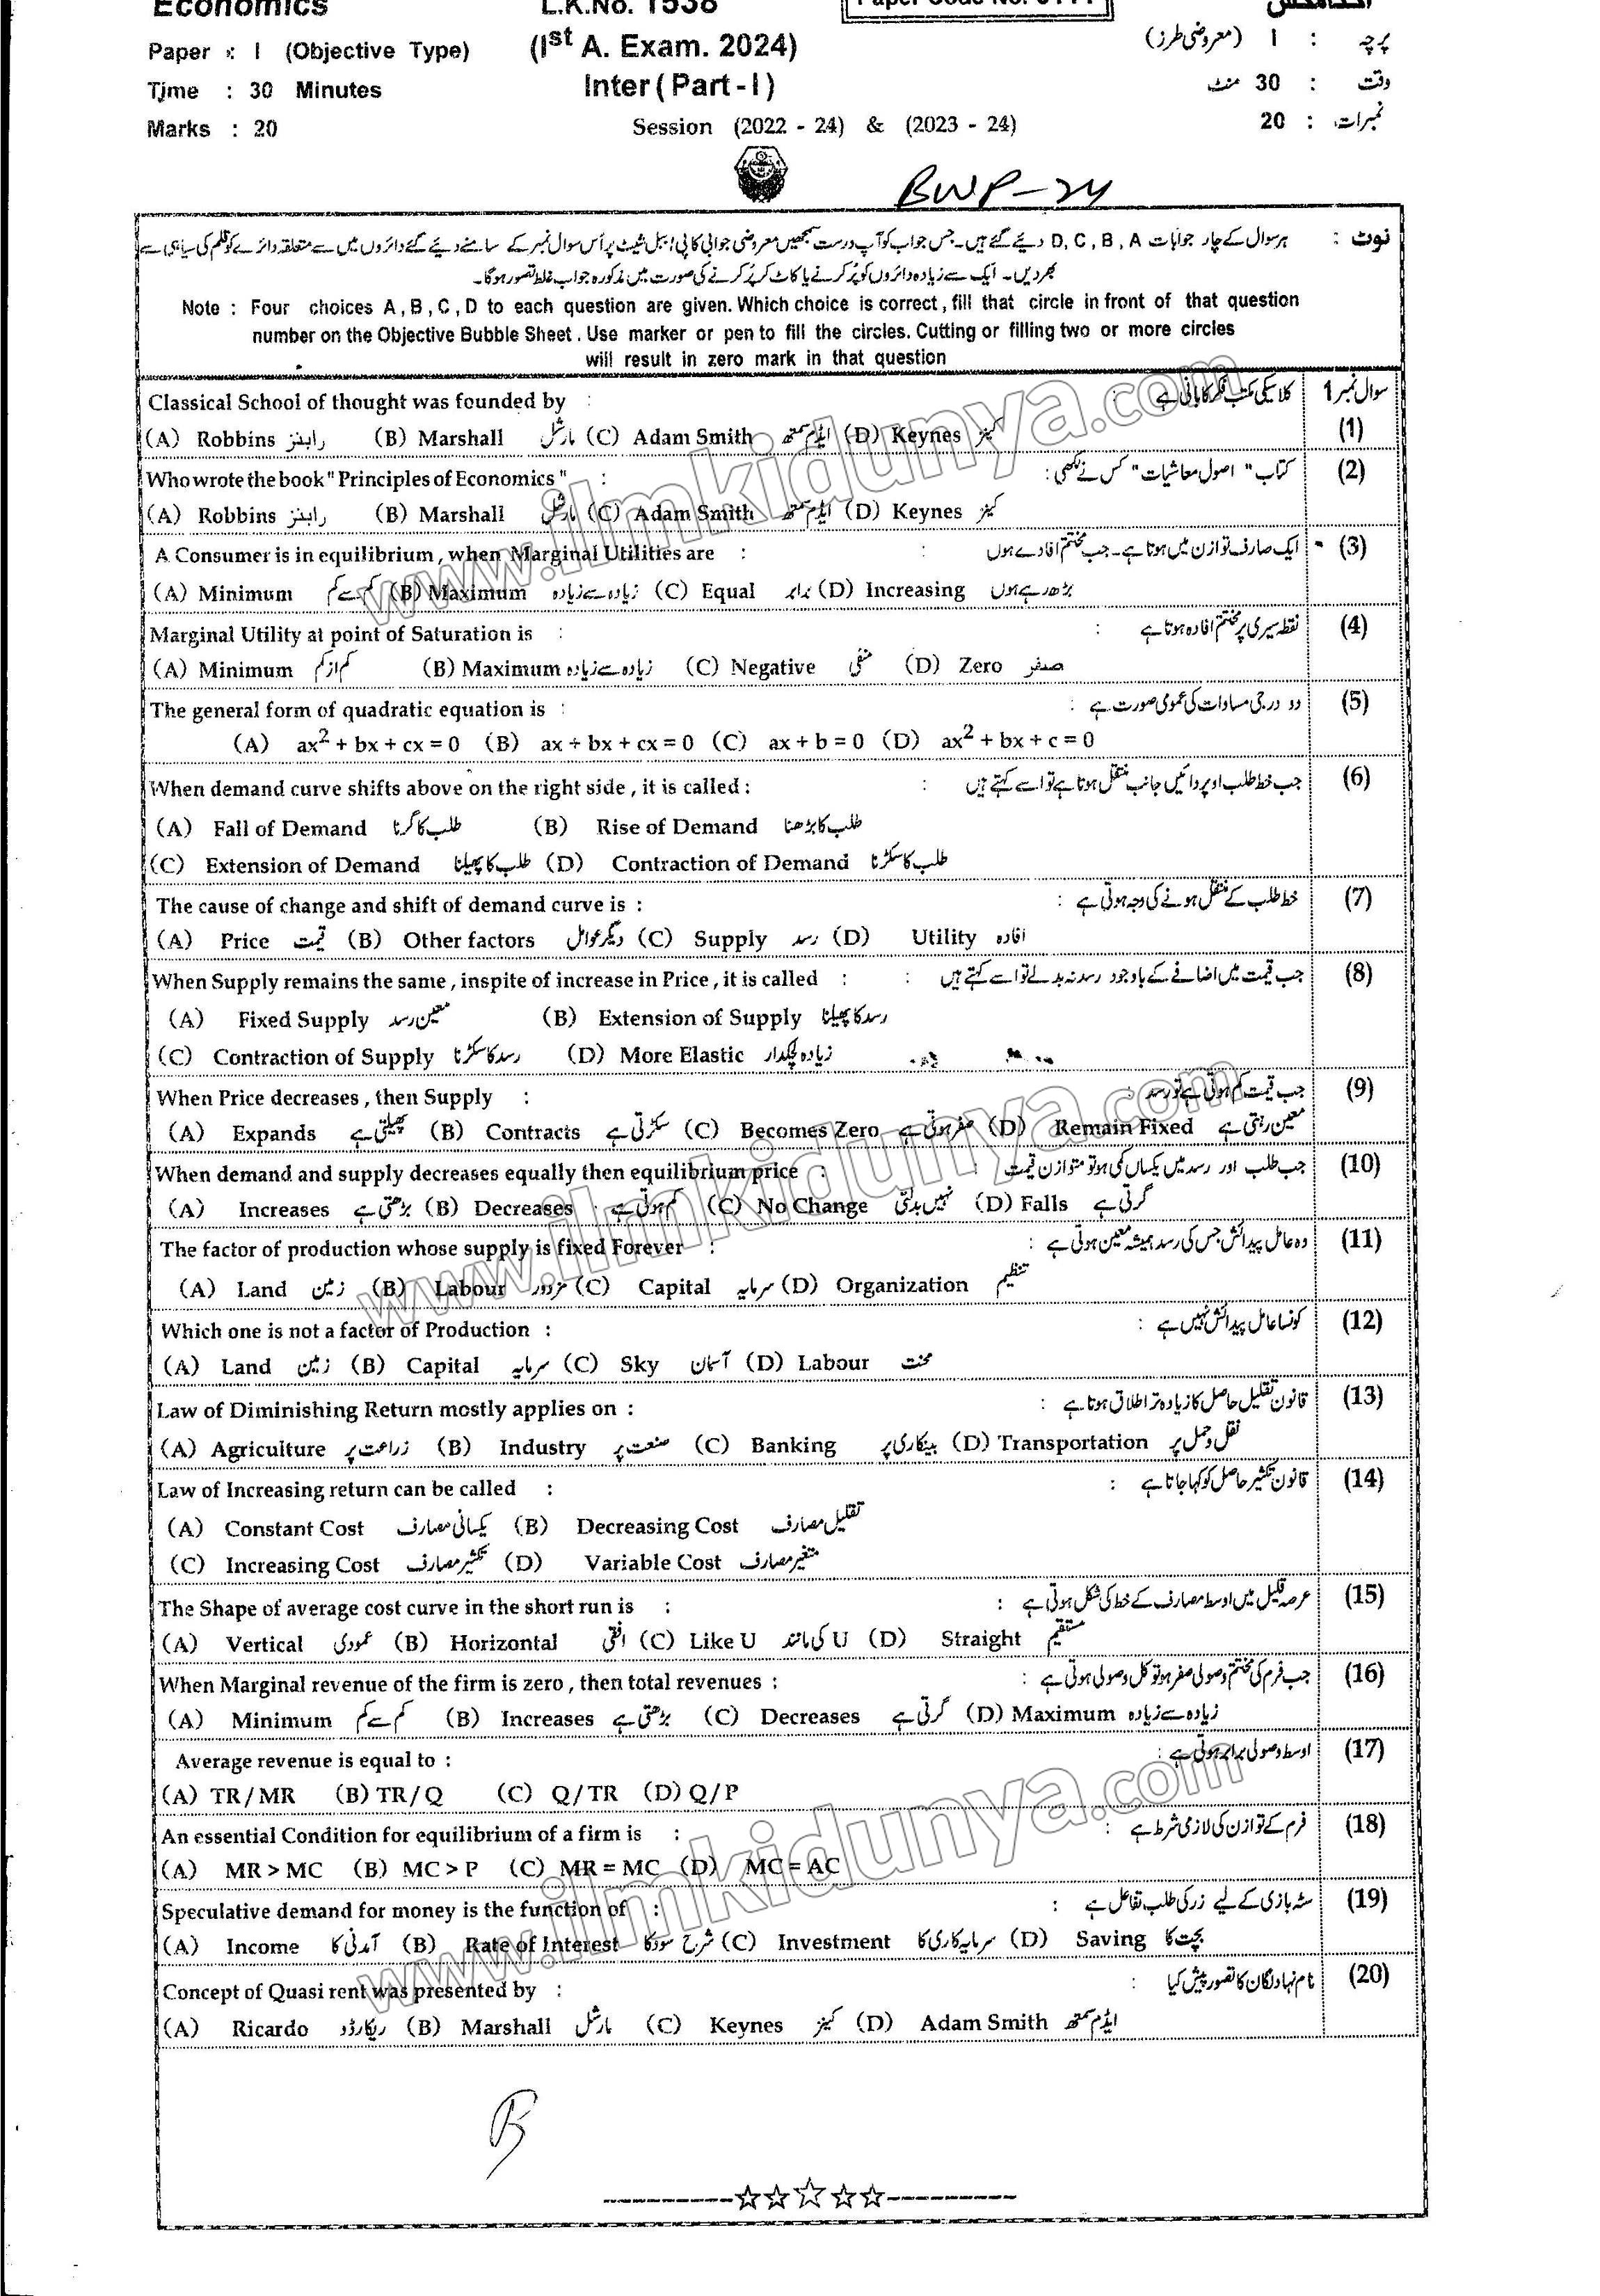 Economics L.K.No. 1538 Paper Code No.
Paper : I (Objective Type) (Ist A. Exam. 2024) پرچہ : I (معروضی طرز)
Time : 30 Minutes Inter ( Part - I ) وقت : 30 منٹ
Marks : 20 Session (2022 - 24) & (2023 - 24) نمبرات : 20
BWP-24
نوٹ : ہر سوال کے چار جوابات D, C, B, A دیئے گئے ہیں۔ جس جواب کو آپ درست سمجھیں معروضی جوابی کاپی / ببل شیٹ پر اُس سوال نمبر کے سامنے دیئے گئے دائروں میں سے متعلقہ دائرے کو قلم کی سیاہی سے
بھر دیں۔ ایک سے زیادہ دائروں کو پُر کرنے یا کاٹ کر پُر کرنے کی صورت میں مذکورہ جواب غلط تصور ہوگا۔
Note : Four choices A , B , C , D to each question are given. Which choice is correct , fill that circle in front of that question
number on the Objective Bubble Sheet . Use marker or pen to fill the circles. Cutting or filling two or more circles
will result in zero mark in that question
Classical School of thought was founded by : کلاسیکی مکتب فکر کا بانی ہے : سوال نمبر 1
(A) Robbins رابنز (B) Marshall مارشل (C) Adam Smith ایڈم سمتھ (D) Keynes کینز (1)
Who wrote the book " Principles of Economics " : کتاب " اصول معاشیات " کس نے لکھی : (2)
(A) Robbins رابنز (B) Marshall مارشل (C) Adam Smith ایڈم سمتھ (D) Keynes کینز
A Consumer is in equilibrium , when Marginal Utilities are : ایک صارف توازن میں ہوتا ہے۔ جب مختتم افادے ہوں : (3)
(A) Minimum کم سے کم (B) Maximum زیادہ سے زیادہ (C) Equal برابر (D) Increasing بڑھ رہے ہوں
Marginal Utility at point of Saturation is : نقطہ سیری پر مختتم افادہ ہوتا ہے : (4)
(A) Minimum کم از کم (B) Maximum زیادہ سے زیادہ (C) Negative منفی (D) Zero صفر
The general form of quadratic equation is : دو درجی مساوات کی عمومی صورت ہے : (5)
(A) ax² + bx + cx = 0 (B) ax + bx + cx = 0 (C) ax + b = 0 (D) ax² + bx + c = 0
When demand curve shifts above on the right side , it is called : جب خط طلب اوپر دائیں جانب منتقل ہوتا ہے تو اسے کہتے ہیں : (6)
(A) Fall of Demand طلب کا گرنا (B) Rise of Demand طلب کا بڑھنا
(C) Extension of Demand طلب کا پھیلنا (D) Contraction of Demand طلب کا سکڑنا
The cause of change and shift of demand curve is : خط طلب کے منتقل ہونے کی وجہ ہوتی ہے : (7)
(A) Price قیمت (B) Other factors دیگر عوامل (C) Supply رسد (D) Utility افادہ
When Supply remains the same , inspite of increase in Price , it is called : جب قیمت میں اضافے کے باوجود رسد نہ بدلے تو اسے کہتے ہیں : (8)
(A) Fixed Supply معین رسد (B) Extension of Supply رسد کا پھیلنا
(C) Contraction of Supply رسد کا سکڑنا (D) More Elastic زیادہ لچکدار
When Price decreases , then Supply : جب قیمت کم ہوتی ہے تو رسد : (9)
(A) Expands پھیلتی ہے (B) Contracts سکڑتی ہے (C) Becomes Zero صفر ہوتی ہے (D) Remain Fixed معین رہتی ہے
When demand and supply decreases equally then equilibrium price : جب طلب اور رسد میں یکساں کمی ہو تو متوازن قیمت : (10)
(A) Increases بڑھتی ہے (B) Decreases کم ہوتی ہے (C) No Change نہیں بدلتی (D) Falls گرتی ہے
The factor of production whose supply is fixed Forever : وہ عامل پیدائش جس کی رسد ہمیشہ معین ہوتی ہے : (11)
(A) Land زمین (B) Labour مزدور (C) Capital سرمایہ (D) Organization تنظیم
Which one is not a factor of Production : کونسا عامل پیدائش نہیں ہے : (12)
(A) Land زمین (B) Capital سرمایہ (C) Sky آسمان (D) Labour محنت
Law of Diminishing Return mostly applies on : قانون تقلیل حاصل کا زیادہ تر اطلاق ہوتا ہے : (13)
(A) Agriculture زراعت پر (B) Industry صنعت پر (C) Banking بینکاری پر (D) Transportation نقل و حمل پر
Law of Increasing return can be called : قانون تکثیر حاصل کو کہا جاتا ہے : (14)
(A) Constant Cost یکسانی مصارف (B) Decreasing Cost تقلیل مصارف
(C) Increasing Cost تکثیر مصارف (D) Variable Cost متغیر مصارف
The Shape of average cost curve in the short run is : عرصہ قلیل میں اوسط مصارف کے خط کی شکل ہوتی ہے : (15)
(A) Vertical عمودی (B) Horizontal افقی (C) Like U U کی مانند (D) Straight مستقیم
When Marginal revenue of the firm is zero , then total revenues : جب فرم کی مختتم وصولی صفر ہو تو کل وصولی ہوتی ہے : (16)
(A) Minimum کم سے کم (B) Increases بڑھتی ہے (C) Decreases گرتی ہے (D) Maximum زیادہ سے زیادہ
Average revenue is equal to : اوسط وصولی برابر ہوتی ہے : (17)
(A) TR / MR (B) TR / Q (C) Q / TR (D) Q / P
An essential Condition for equilibrium of a firm is : فرم کے توازن کی لازمی شرط ہے : (18)
(A) MR > MC (B) MC > P (C) MR = MC (D) MC = AC
Speculative demand for money is the function of : سٹہ بازی کے لیے زر کی طلب تفاعل ہے : (19)
(A) Income آمدنی کا (B) Rate of Interest شرح سود کا (C) Investment سرمایہ کاری کا (D) Saving بچت کا
Concept of Quasi rent was presented by : نام نہاد لگان کا تصور پیش کیا : (20)
(A) Ricardo ریکارڈو (B) Marshall مارشل (C) Keynes کینز (D) Adam Smith ایڈم سمتھ
B
www.ilmkidunya.com
www.ilmkidunya.com
www.ilmkidunya.com